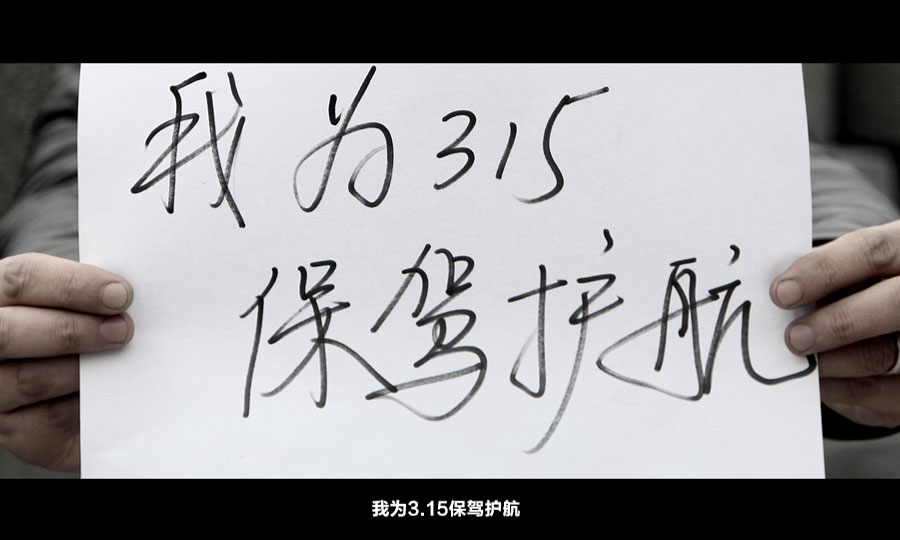 我为315
保驾护航
我为3.15保驾护航